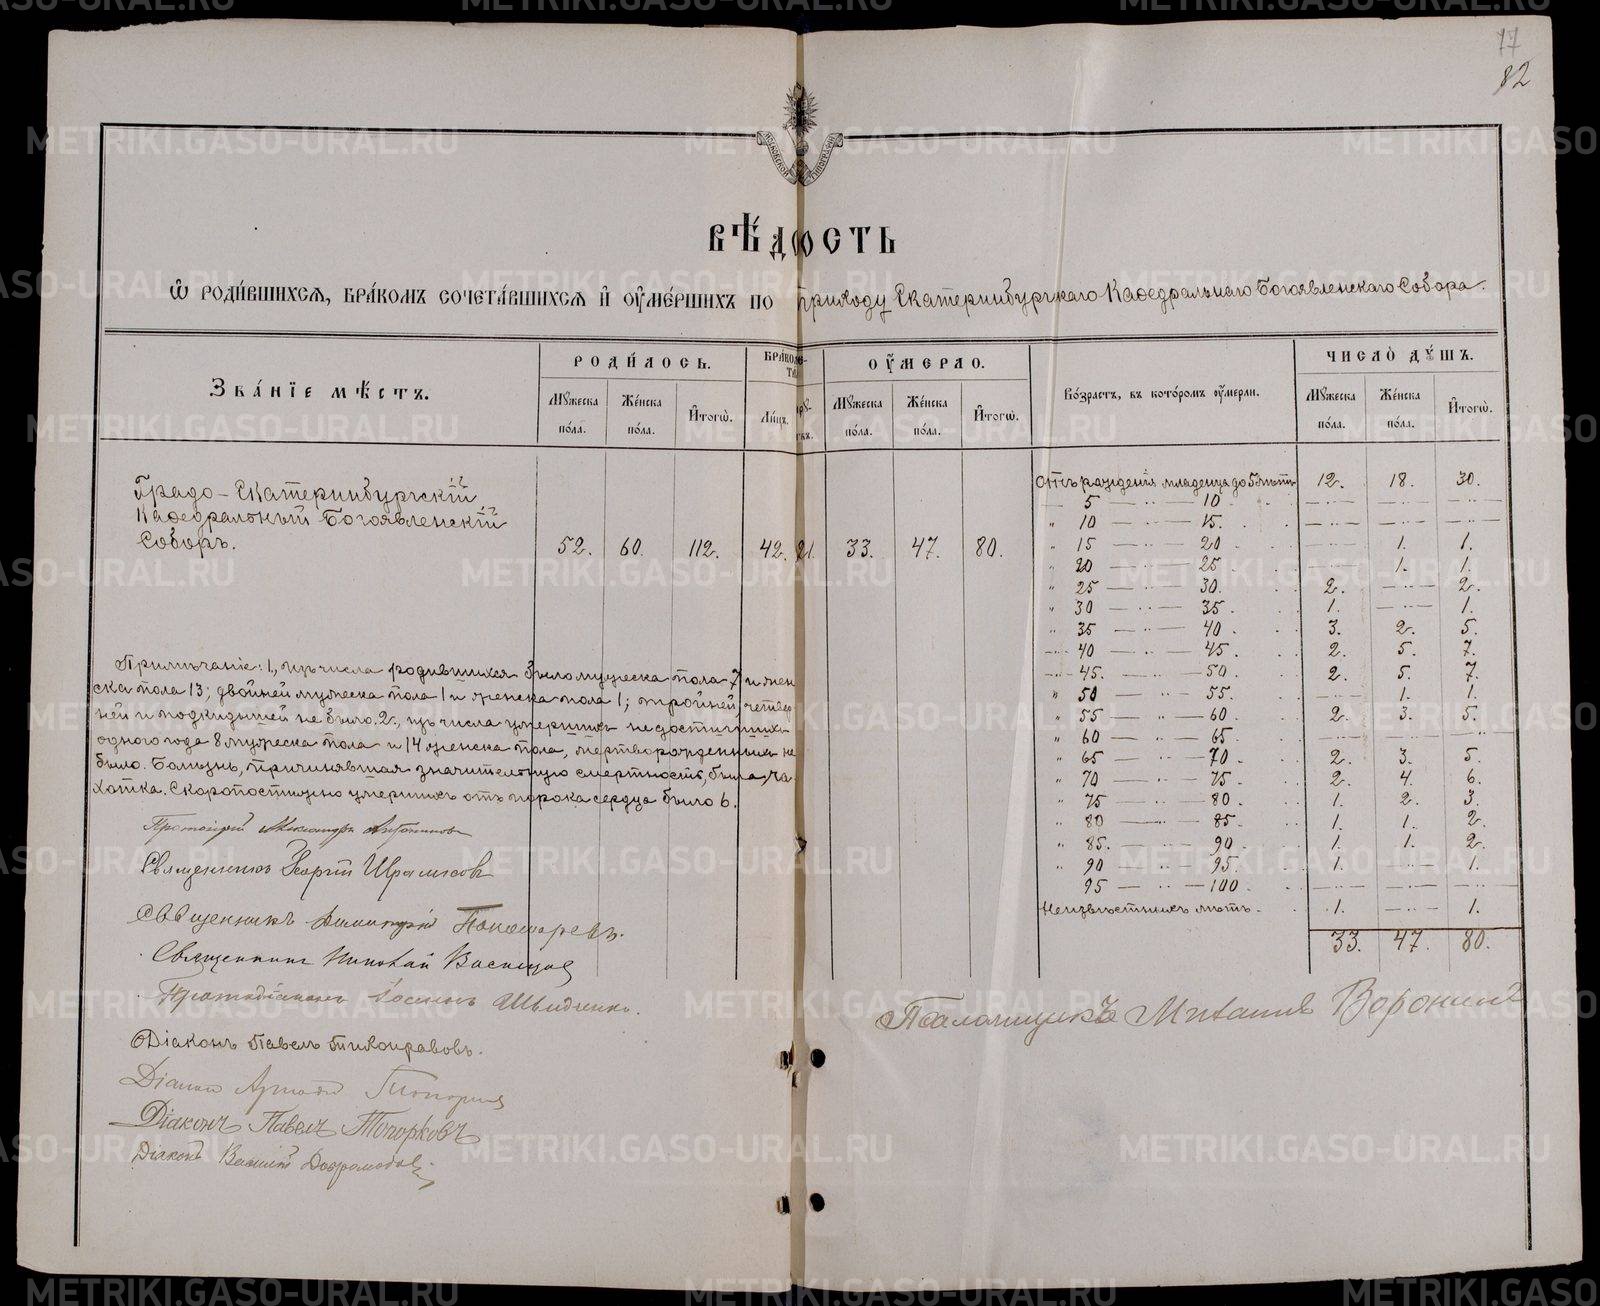 17
82
МОСКОВСКОЙ ТИПОГРАФІИ
ВѢДОМОСТЬ
Ѡ РОДИ́ВШИХСѦ, БРА́КОМЪ СОЧЕТА́ВШИХСѦ И҆ ОУ҆МЕ́РШИХЪ ПО приходу Екатеринбургскаго Каѳедральнаго Богоявленскаго Собора.
Зва́нїе мѣ́стъ.
РОДИ́ЛОСЬ.
Мꙋжеска по́ла.
Же́нска по́ла.
И҆тогѡ̀.
Ли́цъ.
ОУ҆́МЕРЛО.
Мꙋжеска по́ла.
Же́нска по́ла.
И҆тогѡ̀.
Во́зрастъ, въ кото́ромъ оу҆́мерли.
ЧИСЛО̀ ДꙊ́ШЪ.
Мꙋжеска по́ла.
Же́нска по́ла.
И҆тогѡ̀.
Градо-Екатеринбургскій
Каѳедральный Богоявленскій
Соборъ.
52. 60. 112. 42. 21. 33. 47. 80.
Отъ рожденія младенца до 5 лѣтъ 12. 18. 30.
5 — " — 10 . — " — — " — — " —
" 10 — " — 15. — " — — " — — " —
" 15 — " — 20 . — " — 1. 1.
" 20 — " — 25 . — " — 1. 1.
" 25 — " — 30. 2. — " — 2.
" 30 — " — 35 . 1. — " — 1.
" 35 — " — 40 . 3. 2. 5.
40 — " — 45 . 2. 5. 7.
45. — " — 50 . 2. 5. 7.
" 50 — " — 55. — " — 1. 1.
" 55 — " — 60 . 2. 3. 5.
" 60 — " — 65. — " — — " — — " —
" 65 — " — 70 . 2. 3. 5.
" 70 — " — 75 . 2. 4. 6.
" 75 — " — 80 . 1. 2. 3.
" 80 — " — 85. 1. 1. 2.
" 85. — " — 90 . 1. 1. 2.
" 90 — " — 95. 1. — " — 1.
95 — " — 100 . — " — — " — — " —
Неизвѣстныхъ лѣтъ . 1. — " — 1.
33. 47. 80.
Примѣчаніе: 1, изъ числа родившихся было мужеска пола 7 и жен
ска пола 13; двойней мужеска пола 1 и женска пола 1; тройней, четвер
ней и подкидышей не было. 2, изъ числа умершихъ недостигшихъ
одного года 8 мужеска пола и 14 женска пола, мертворожденныхъ не
было. Болѣзнь, причинявшая значительную смертность, была ча
хотка. Скоропостижно умершихъ отъ порока сердца было 6.
Протоіерей Александръ
Священникъ Георгій
Священникъ Димитрій Пономаревъ.
Священникъ Николай
Протодіаконъ
Діаконъ Павелъ Тихонравовъ.
Діаконъ
Діаконъ Павелъ Топорковъ
Діаконъ Василій
Псаломщикъ Михаилъ Воронинъ
METRIKI.GASO-URAL.RU